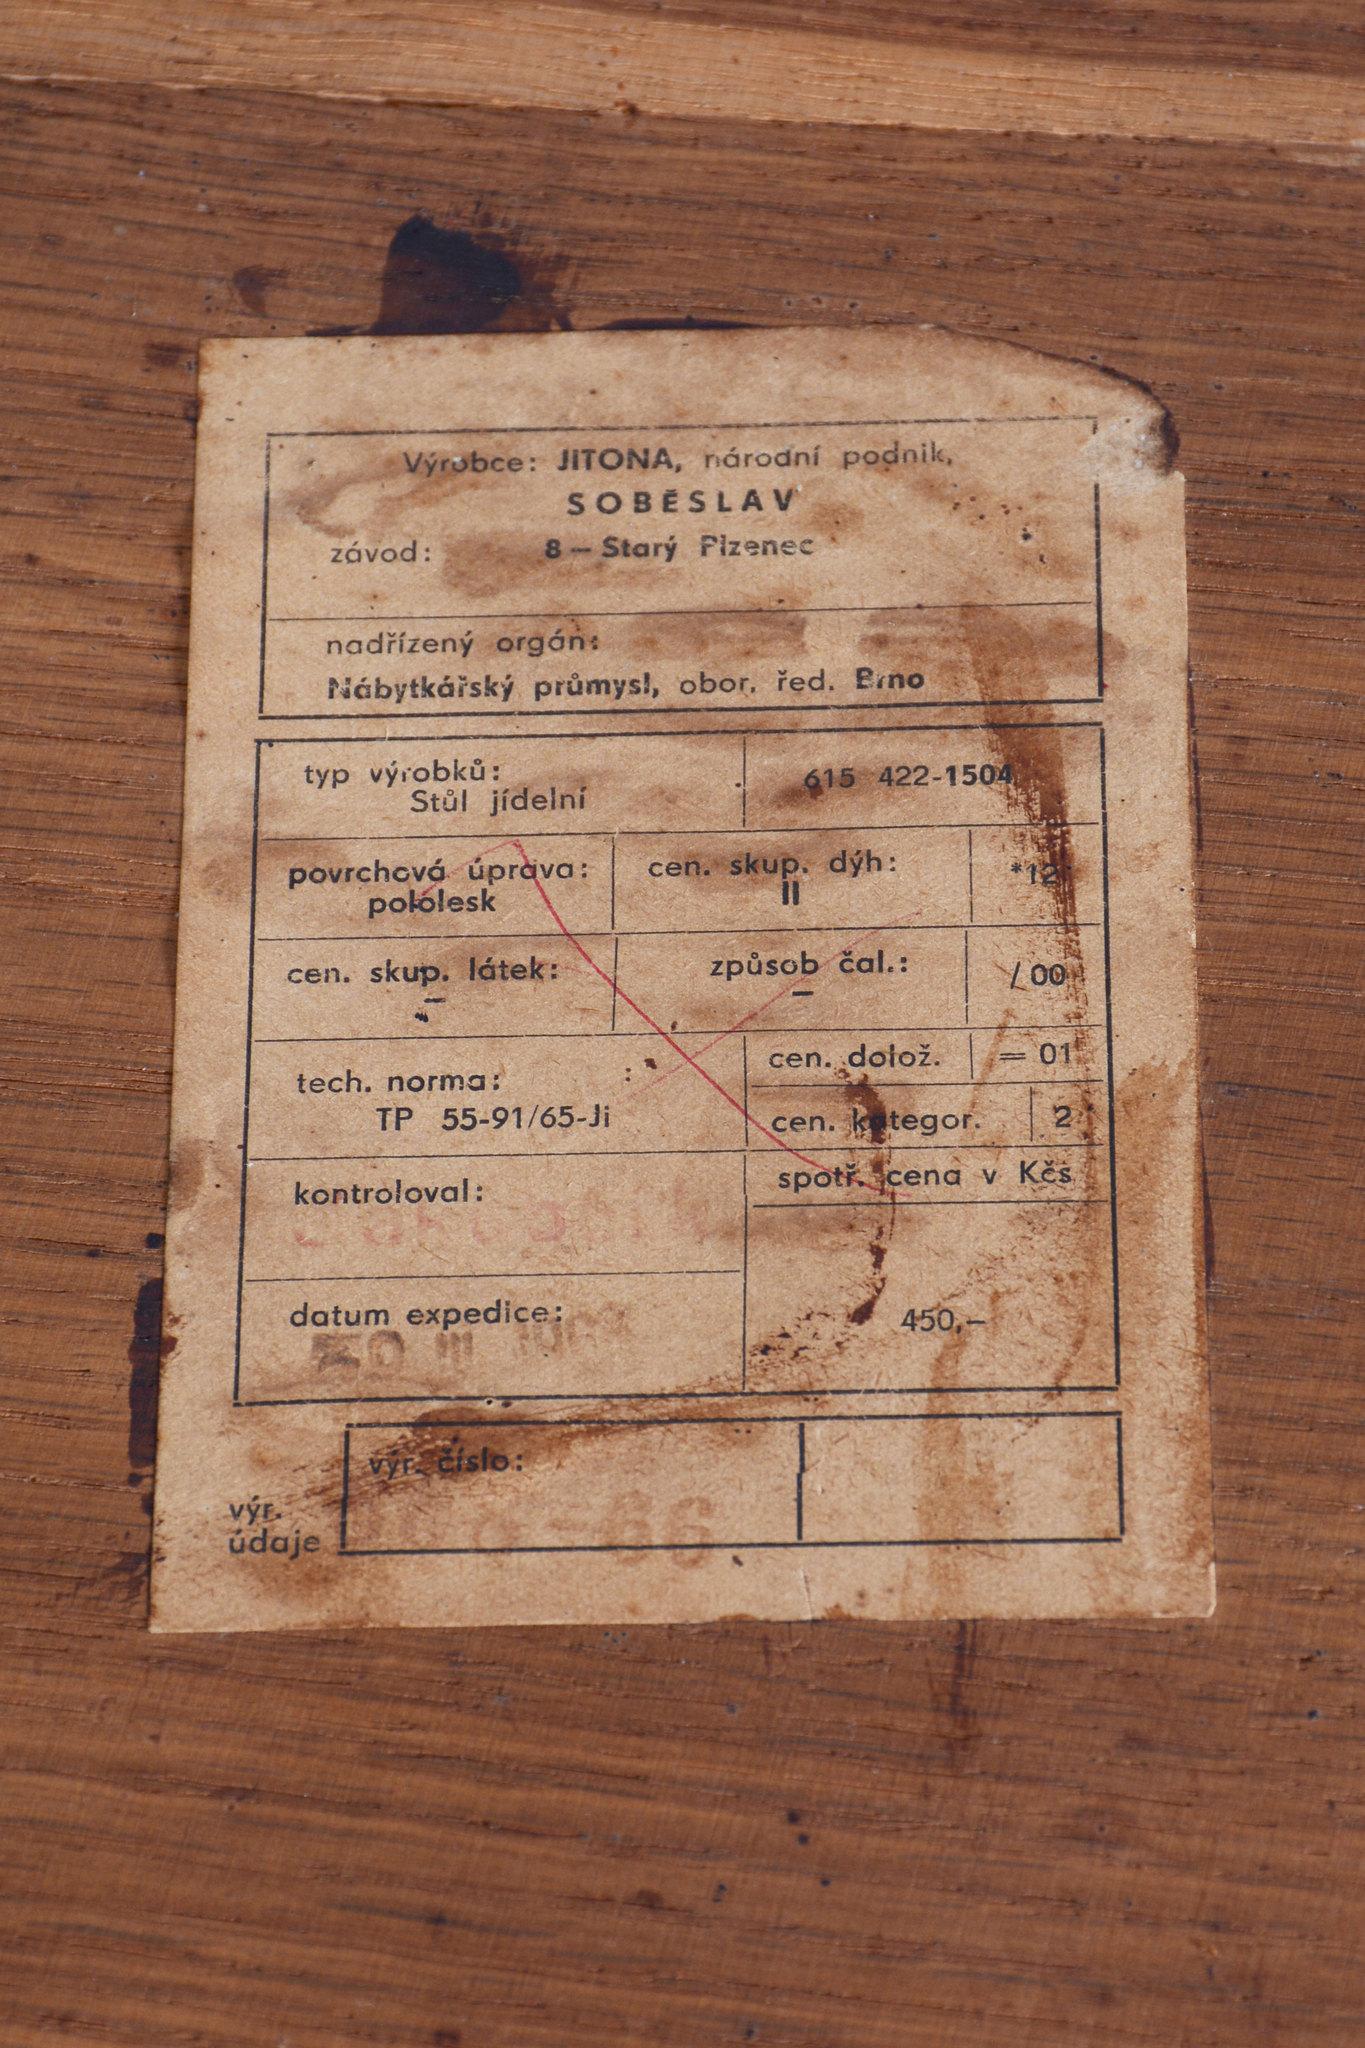 Výrobce: JITONA, národní podnik,
SOBĚSLAV
závod: 8 – Starý Plzenec
nadřízený orgán:
Nábytkářský průmysl, obor. řed. Brno
typ výrobků: 615 422-1504
Stůl jídelní
povrchová úprava: cen. skup. dýh: *12
pololesk II
cen. skup. látek: způsob čal.: /00
– –
cen. dolož. = 01
tech. norma:
TP 55-91/65-Ji cen. kategor. 2
kontroloval: spotř. cena v Kčs
datum expedice: 450,–
výr. číslo:
výr.
údaje